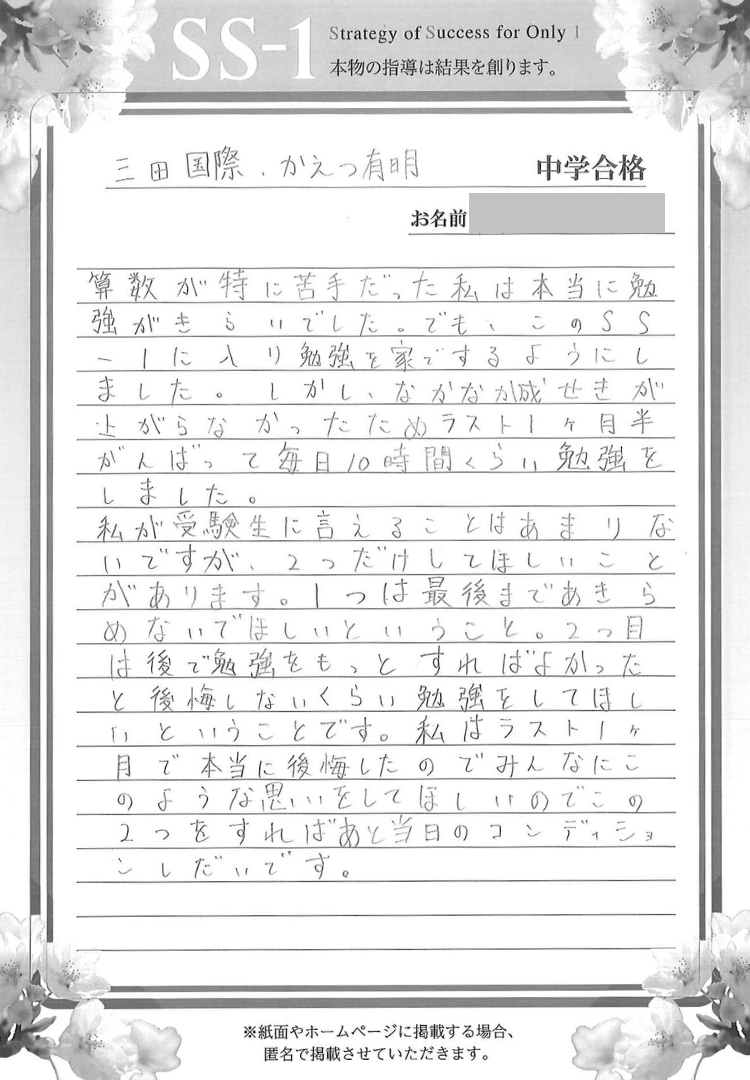 SS-1 Strategy of Success for Only 1
本物の指導は結果を創ります。
三田国際、かえつ有明 中学合格
お名前
算数が特に苦手だった私は本当に勉
強がきらいでした。でも、このSS
-1に入り勉強を家でするようにし
ました。しかし、なかなか成せきが
上がらなかったためラスト1ヶ月半
がんばって毎日10時間くらい勉強を
しました。
私が受験生に言えることはあまりな
いですが、2つだけしてほしいこと
があります。1つは最後まであきら
めないでほしいということ。2つ目
は後で勉強をもっとすればよかった
と後悔しないくらい勉強をしてほし
いということです。私はラスト1ヶ
月で本当に後悔したのでみんなにこ
のような思いをしてほしいのでこの
2つをすればあと当日のコンディショ
ンしだいです。
※紙面やホームページに掲載する場合、
匿名で掲載させていただきます。